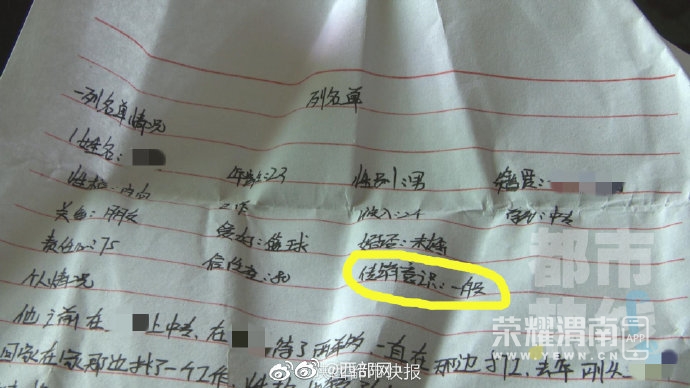 列名单
一列名单情况
1姓名:
性格:内向 年龄:23 性别:男
关系:朋友 工作 收入:24 学历:中专
责任心:75 爱好:篮球 婚否:未婚
个人情况 信任度:80 传销意识:一般
他之前在 上中专,在 待了两年多一直在那边打工,去年刚
回家在家那边找了一个工作
都市
荣耀渭南
WWW.YEWN.CN
APP
@西部网快报